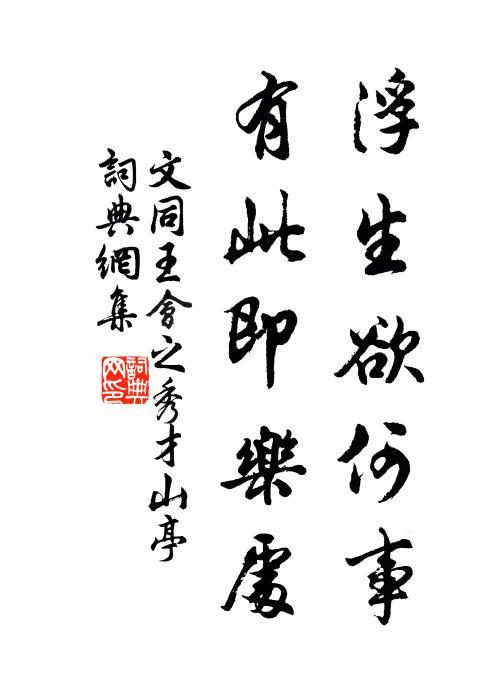 浮生欲何事
有此即樂處
文同王會之秀才山亭
詞典網集
詞典網印